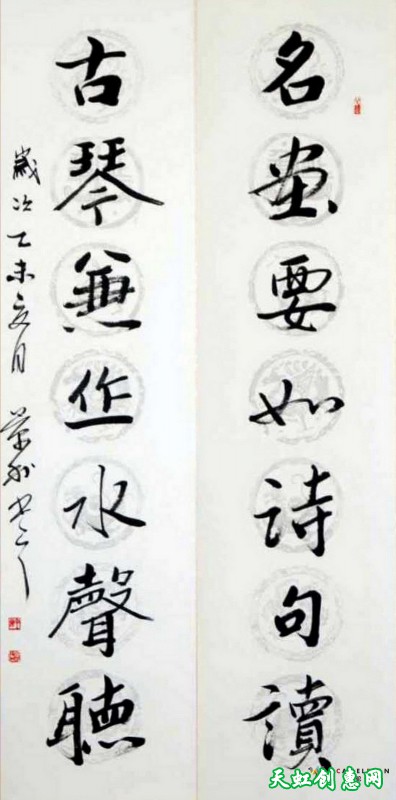 名畫要如詩句讀
古琴兼作水聲聽
歲次乙未夏月
天虹创惠网